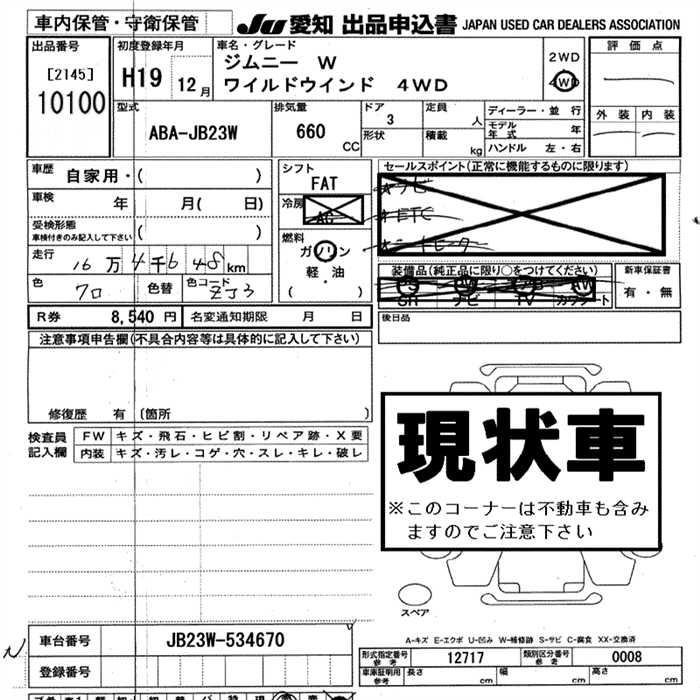 車内保管・守衛保管 JU 愛知 出品申込書 JAPAN USED CAR DEALERS ASSOCIATION
出品番号 初度登録年月 車名・グレード 評価点
[2145] H19 12月 ジムニー W 2WD
10100 ワイルドウインド 4WD 4WD
外装 内装
型式 排気量 ドア 定員 ディーラー・並行
ABA-JB23W 660 CC 3 人 モデル年式 年
形状 積載 kg ハンドル 左・右
車歴 自家用・( ) シフト セールスポイント(正常に機能するものに限ります)
FAT ナビ
車検 年 月( 日) 冷房 AC ETC
受検形態
車検付きのみ記入して下さい ( ) 燃料
ガソリン
走行 16万4千648km 軽・油
( )
色 クロ 色替 色コード ZJ3
装備品(純正品に限り○をつけてください) 新車保証書
PS PW AB AW 有・無
SR ナビ TV カワシート
R券 8,540円 名変通知期限 月 日 後日品
注意事項申告欄(不具合内容等は具体的に記入して下さい)
修復歴 有 (箇所 )
検査員記入欄 FW キズ・飛石・ヒビ割・リペア跡・X要
内装 キズ・汚レ・コゲ・穴・スレ・キレ・破レ
現状車
※このコーナーは不動車も含み
ますのでご注意下さい
スペア
A-キズ E-エクボ U-凹み W-補修跡 S-サビ C-腐食 XX-交換済
車台番号 JB23W-534670
登録番号
形式指定番号 参考 12717 類別区分番号 参考 0008
車庫証明用 参考 長さ cm 幅 cm 高さ cm